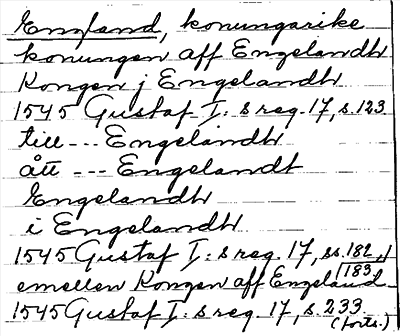 England, konungarike
konungen aff Engelandh
Kongen j Engelandh
1545 Gustaf I:s reg. 17, s. 123
till --- Engelandh
ått --- Engelandt
Engelandh
i Engelandh
1545 Gustaf I:s reg. 17, ss. 182,
183
emellen Kongen aff Engeland
1545 Gustaf I:s reg. 17, s. 233
(forts.)